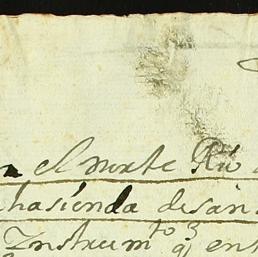 el norte Rio
hasienda de san
Instrum^to 3 q^e ent